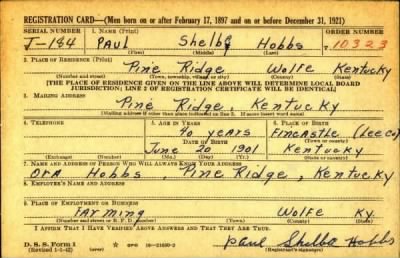 REGISTRATION CARD—(Men born on or after February 17, 1897 and on or before December 31, 1921)
SERIAL NUMBER 1. NAME (Print) ORDER NUMBER
T-184 Paul Shelby Hobbs 10323
(First) (Middle) (Last)
2. PLACE OF RESIDENCE (Print)
Pine Ridge Wolfe Kentucky
(Number and street) (Town, township, village, or city) (County) (State)
[THE PLACE OF RESIDENCE GIVEN ON THE LINE ABOVE WILL DETERMINE LOCAL BOARD
JURISDICTION; LINE 2 OF REGISTRATION CERTIFICATE WILL BE IDENTICAL]
3. MAILING ADDRESS
Pine Ridge, Kentucky
[Mailing address if other than place indicated on line 2. If same insert word same]
4. TELEPHONE 5. AGE IN YEARS 6. PLACE OF BIRTH
40 years Fincastle (Lee Co)
DATE OF BIRTH (Town or county)
June 20 1901 Kentucky
(Exchange) (Number) (Mo.) (Day) (Yr.) (State or country)
7. NAME AND ADDRESS OF PERSON WHO WILL ALWAYS KNOW YOUR ADDRESS
Ora Hobbs, Pine Ridge, Kentucky
8. EMPLOYER'S NAME AND ADDRESS
9. PLACE OF EMPLOYMENT OR BUSINESS
Farming Wolfe Ky.
(Number and street or R. F. D. number) (Town) (County) (State)
I AFFIRM THAT I HAVE VERIFIED ABOVE ANSWERS AND THAT THEY ARE TRUE.
D. S. S. Form 1
(Revised 1-1-42) GPO 16—21630-2 Paul Shelba Hobbs